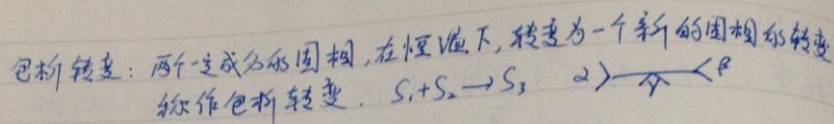 包析转变：两个一定成分的固相，在恒温下，转变为一个新的固相的转变
称作包析转变． S₁+S₂→S₃ α＞─∧─＜β
γ